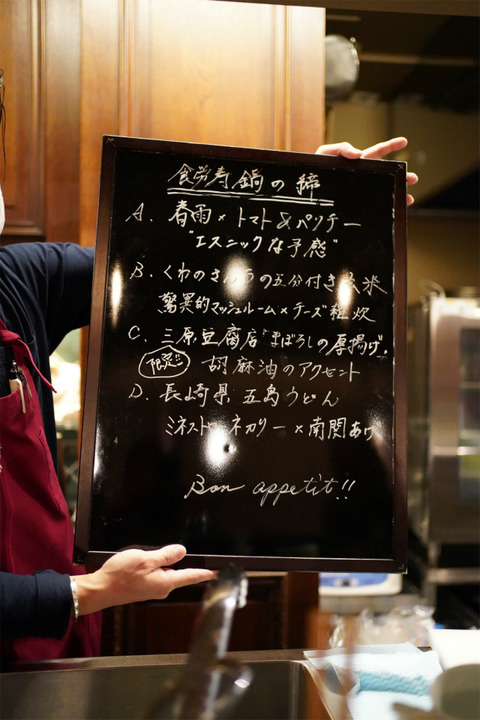 食労寿鍋の締
A. 春雨×トマト&パクチー
"エスニックな予感"
B. くわのきのうの五分付き玄米
驚異的マッシュルーム×チーズ雑炊
C. 三原豆腐店「まぼろしの厚揚げ」
限定!! 胡麻油のアクセント
D. 長崎県 五島うどん
ミネストローネカリー×南関あげ
Bon appetit!!